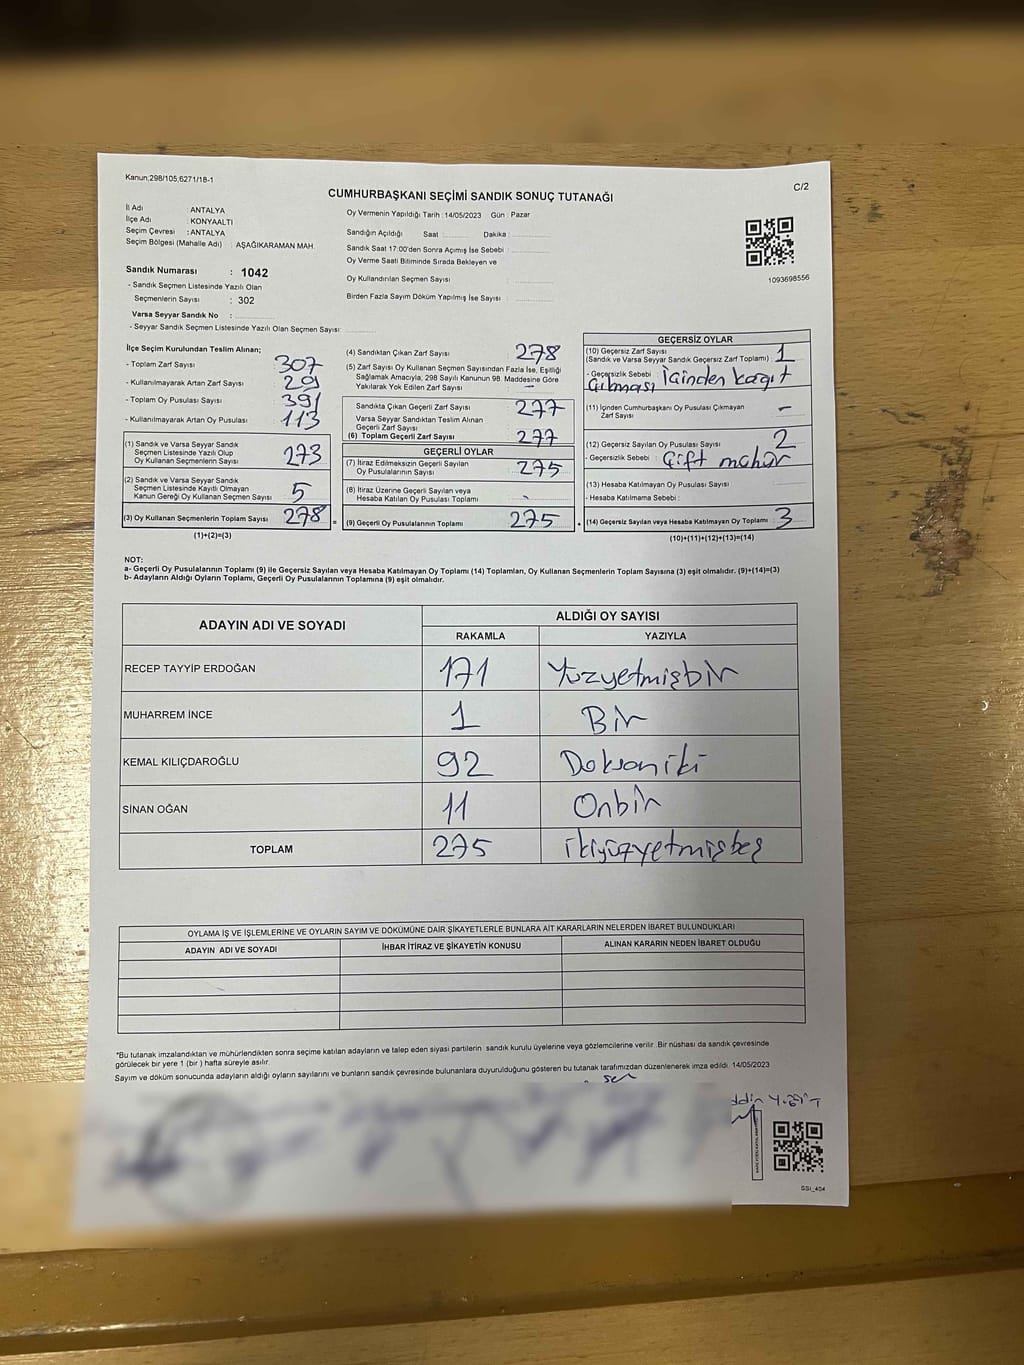 Kanun;298/105,6271/18-1
CUMHURBAŞKANI SEÇİMİ SANDIK SONUÇ TUTANAĞI
C/2
İl Adı : ANTALYA
İlçe Adı : KONYAALTI
Seçim Çevresi : ANTALYA
Seçim Bölgesi (Mahalle Adı) : AŞAĞIKARAMAN MAH.
Sandık Numarası : 1042
- Sandık Seçmen Listesinde Yazılı Olan
Seçmenlerin Sayısı : 302
Varsa Seyyar Sandık No :
- Seyyar Sandık Seçmen Listesinde Yazılı Olan Seçmen Sayısı:
Oy Vermenin Yapıldığı Tarih : 14/05/2023 Gün : Pazar
Sandığın Açıldığı Saat : Dakika :
Sandık Saat 17:00'den Sonra Açımış İse Sebebi :
Oy Verme Saati Bitiminde Sırada Bekleyen ve
Oy Kullandırılan Seçmen Sayısı :
Birden Fazla Sayım Döküm Yapılmış İse Sayısı :
1093698556
İlçe Seçim Kurulundan Teslim Alınan;
- Toplam Zarf Sayısı 307
- Kullanılmayarak Artan Zarf Sayısı 29
- Toplam Oy Pusulası Sayısı 391
- Kullanılmayarak Artan Oy Pusulası 113
(1) Sandık ve Varsa Seyyar Sandık
Seçmen Listesinde Yazılı Olup
Oy Kullanan Seçmenlerin Sayısı 273
(2) Sandık ve Varsa Seyyar Sandık
Seçmen Listesinde Kayıtlı Olmayan
Kanun Gereği Oy Kullanan Seçmen Sayısı 5
(3) Oy Kullanan Seçmenlerin Toplam Sayısı 278 =
(1)+(2)=(3)
(4) Sandıktan Çıkan Zarf Sayısı 278
(5) Zarf Sayısı Oy Kullanan Seçmen Sayısından Fazla İse, Eşitliği
Sağlamak Amacıyla, 298 Sayılı Kanunun 98. Maddesine Göre
Yakılarak Yok Edilen Zarf Sayısı -
Sandıkta Çıkan Geçerli Zarf Sayısı 277
Varsa Seyyar Sandıktan Teslim Alınan
Geçerli Zarf Sayısı
(6) Toplam Geçerli Zarf Sayısı 277
GEÇERLİ OYLAR
(7) İtiraz Edilmeksizin Geçerli Sayılan
Oy Pusulalarının Sayısı 275
(8) İtiraz Üzerine Geçerli Sayılan veya
Hesaba Katılan Oy Pusulası Toplamı
(9) Geçerli Oy Pusulalarının Toplamı 275 +
GEÇERSİZ OYLAR
(10) Geçersiz Zarf Sayısı
(Sandık ve Varsa Seyyar Sandık Geçersiz Zarf Toplamı) : 1
- Geçersizlik Sebebi : İçinden kağıt
Çıkması
(11) İçinden Cumhurbaşkanı Oy Pusulası Çıkmayan
Zarf Sayısı -
(12) Geçersiz Sayılan Oy Pusulası Sayısı 2
- Geçersizlik Sebebi : Çift mühür
(13) Hesaba Katılmayan Oy Pusulası Sayısı
- Hesaba Katılmama Sebebi :
(14) Geçersiz Sayılan veya Hesaba Katılmayan Oy Toplamı : 3
(10)+(11)+(12)+(13)=(14)
NOT:
a- Geçerli Oy Pusulalarının Toplamı (9) ile Geçersiz Sayılan veya Hesaba Katılmayan Oy Toplamı (14) Toplamları, Oy Kullanan Seçmenlerin Toplam Sayısına (3) eşit olmalıdır. (9)+(14)=(3)
b- Adayların Aldığı Oyların Toplamı, Geçerli Oy Pusulalarının Toplamına (9) eşit olmalıdır.
ADAYIN ADI VE SOYADI ALDIĞI OY SAYISI
RAKAMLA YAZIYLA
RECEP TAYYİP ERDOĞAN 171 Yüzyetmişbir
MUHARREM İNCE 1 Bir
KEMAL KILIÇDAROĞLU 92 Doksaniki
SİNAN OĞAN 11 Onbir
TOPLAM 275 ikiyüzyetmişbeş
OYLAMA İŞ VE İŞLEMLERİNE VE OYLARIN SAYIM VE DÖKÜMÜNE DAİR ŞİKAYETLERLE BUNLARA AİT KARARLARIN NELERDEN İBARET BULUNDUKLARI
ADAYIN ADI VE SOYADI İHBAR İTİRAZ VE ŞİKAYETİN KONUSU ALINAN KARARIN NEDEN İBARET OLDUĞU
*Bu tutanak imzalandıktan ve mühürlendikten sonra seçime katılan adayların ve talep eden siyasi partilerin sandık kurulu üyelerine veya gözlemcilerine verilir. Bir nüshası da sandık çevresinde
görülecek bir yere 1 (bir ) hafta süreyle asılır.
Sayım ve döküm sonucunda adayların aldığı oyların sayılarını ve bunların sandık çevresinde bulunanlara duyurulduğunu gösteren bu tutanak tarafımızdan düzenlenerek imza edildi. 14/05/2023
ddin Yiğit
SSI_404